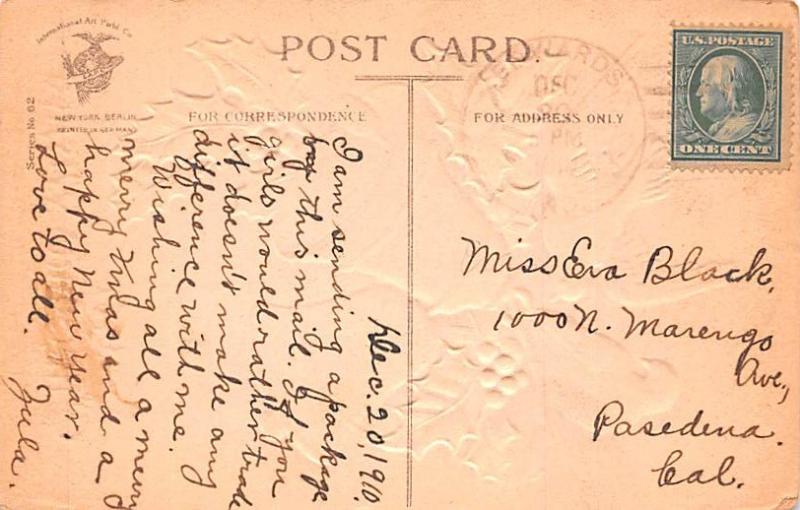 International Art Publ. Co.
NEW YORK BERLIN
PRINTED IN GERMANY
Series No 62
POST CARD.
FOR CORRESPONDENCE
FOR ADDRESS ONLY
DEC
20
PM
U.S. POSTAGE
ONE CENT
Dec. 20, 1910.
I am sending a package
by this mail. If you
girls would rather trade
it doesn't make any
difference with me.
Wishing all a merry
merry Xmas and a
happy New Year.
Love to all.
Zula.
Miss Eva Black,
1000 N. Marengo
Ave.,
Pasedena.
Cal.